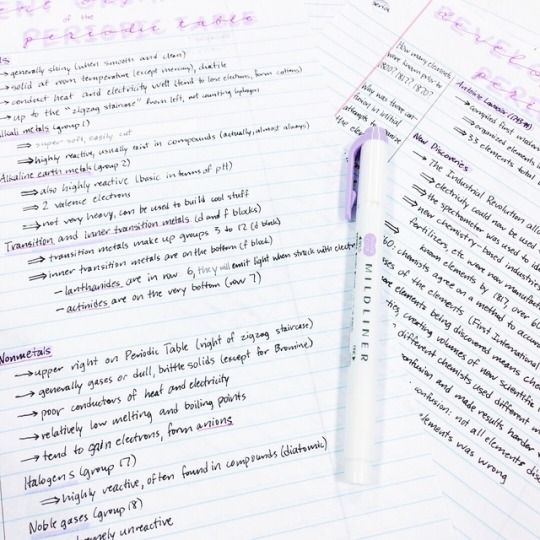 of the
periodic table
→ generally shiny (when smooth and clean)
→ solid at room temperature (except mercury), ductile
→ conduct heat and electricity well (tend to lose electrons, form cations)
→ up to the "zigzag staircase" from left, not counting hydrogen
Alkali metals (group 1)
⇒ super soft, easily cut
⇒ highly reactive, usually exist in compounds (actually, almost always)
Alkaline earth metals (group 2)
⇒ also highly reactive (basic in terms of pH)
⇒ 2 valence electrons
⇒ not very heavy, can be used to build cool stuff
Transition and inner transition metals (d and f blocks)
⇒ transition metals make up groups 3 to 12 (d block)
⇒ inner transition metals are on the bottom (f block)
- lanthanides are in row 6, they will emit light when struck with
- actinides are on the very bottom (row 7)
Nonmetals
→ upper right on Periodic Table (right of zigzag staircase)
→ generally gases or dull, brittle solids (except for Bromine)
→ poor conductors of heat and electricity
→ relatively low melting and boiling points
→ tend to gain electrons, form anions
Halogens (group 17)
⇒ highly reactive, often found in compounds (diatomic)
Noble gases (group 18)
unreactive
MILDLINER
How many elements
were known prior to
1800? 1817? 1870?
Why was there
Antoine Lavoisier
compiled first
organized elements
33 elements total
New Discoveries
⇒ The Industrial Revolution
⇒ electricity could now be used
⇒ the spectrometer was used to
⇒ new chemistry-based industries
fertilizers, etc. were now
60: chemists agree on a method to
known elements by 1817, over 60
of the elements (First International
elements being discovered means
creating volumes of new scientific
different chemists used different
confusion and made results harder
confusion: not all elements
elements was wrong